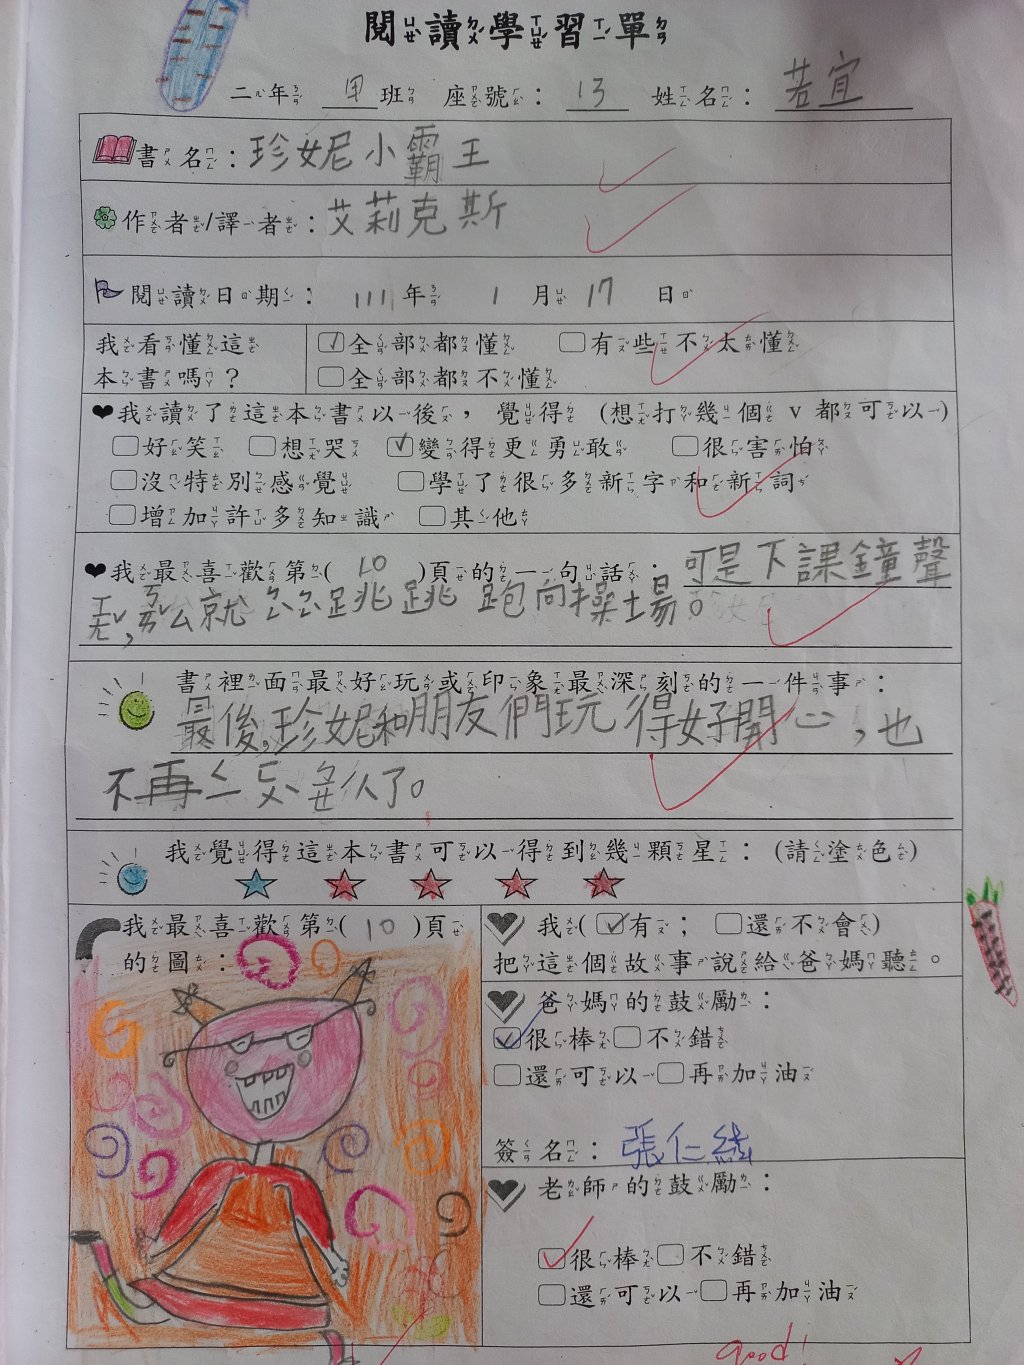 閱讀學習單
二年 甲 班 座號：13 姓名：若宜
書名：珍妮小霸王
作者/譯者：艾莉克斯
閱讀日期：111年 1月17日
我看懂這本書嗎？
☑全部都懂 □有些不太懂
□全部都不懂
❤我讀了這本書以後，覺得 (想打幾個 v 都可以)
□好笑 □想哭 ☑變得更勇敢 □很害怕
□沒特別感覺 □學了很多新字和新詞
□增加許多知識 □其他
❤我最喜歡第( 10 )頁的一句話：可是下課鐘聲
就ㄍㄍ跳跳 跑向操場。
書裡面最好玩或印象最深刻的一件事：
最後,珍妮和朋友們玩得好開心,也
不再ㄑㄧ ㄈㄨˋ ㄅㄧㄝˊ人了。
我覺得這本書可以得到幾顆星：(請塗色)
我最喜歡第( 10 )頁
的圖：
我(☑有；□還不會)
把這個故事說給爸媽聽。
爸媽的鼓勵：
☑很棒□不錯
□還可以□再加油
簽名：張仁
老師的鼓勵：
☑很棒□不錯
□還可以□再加油
good!